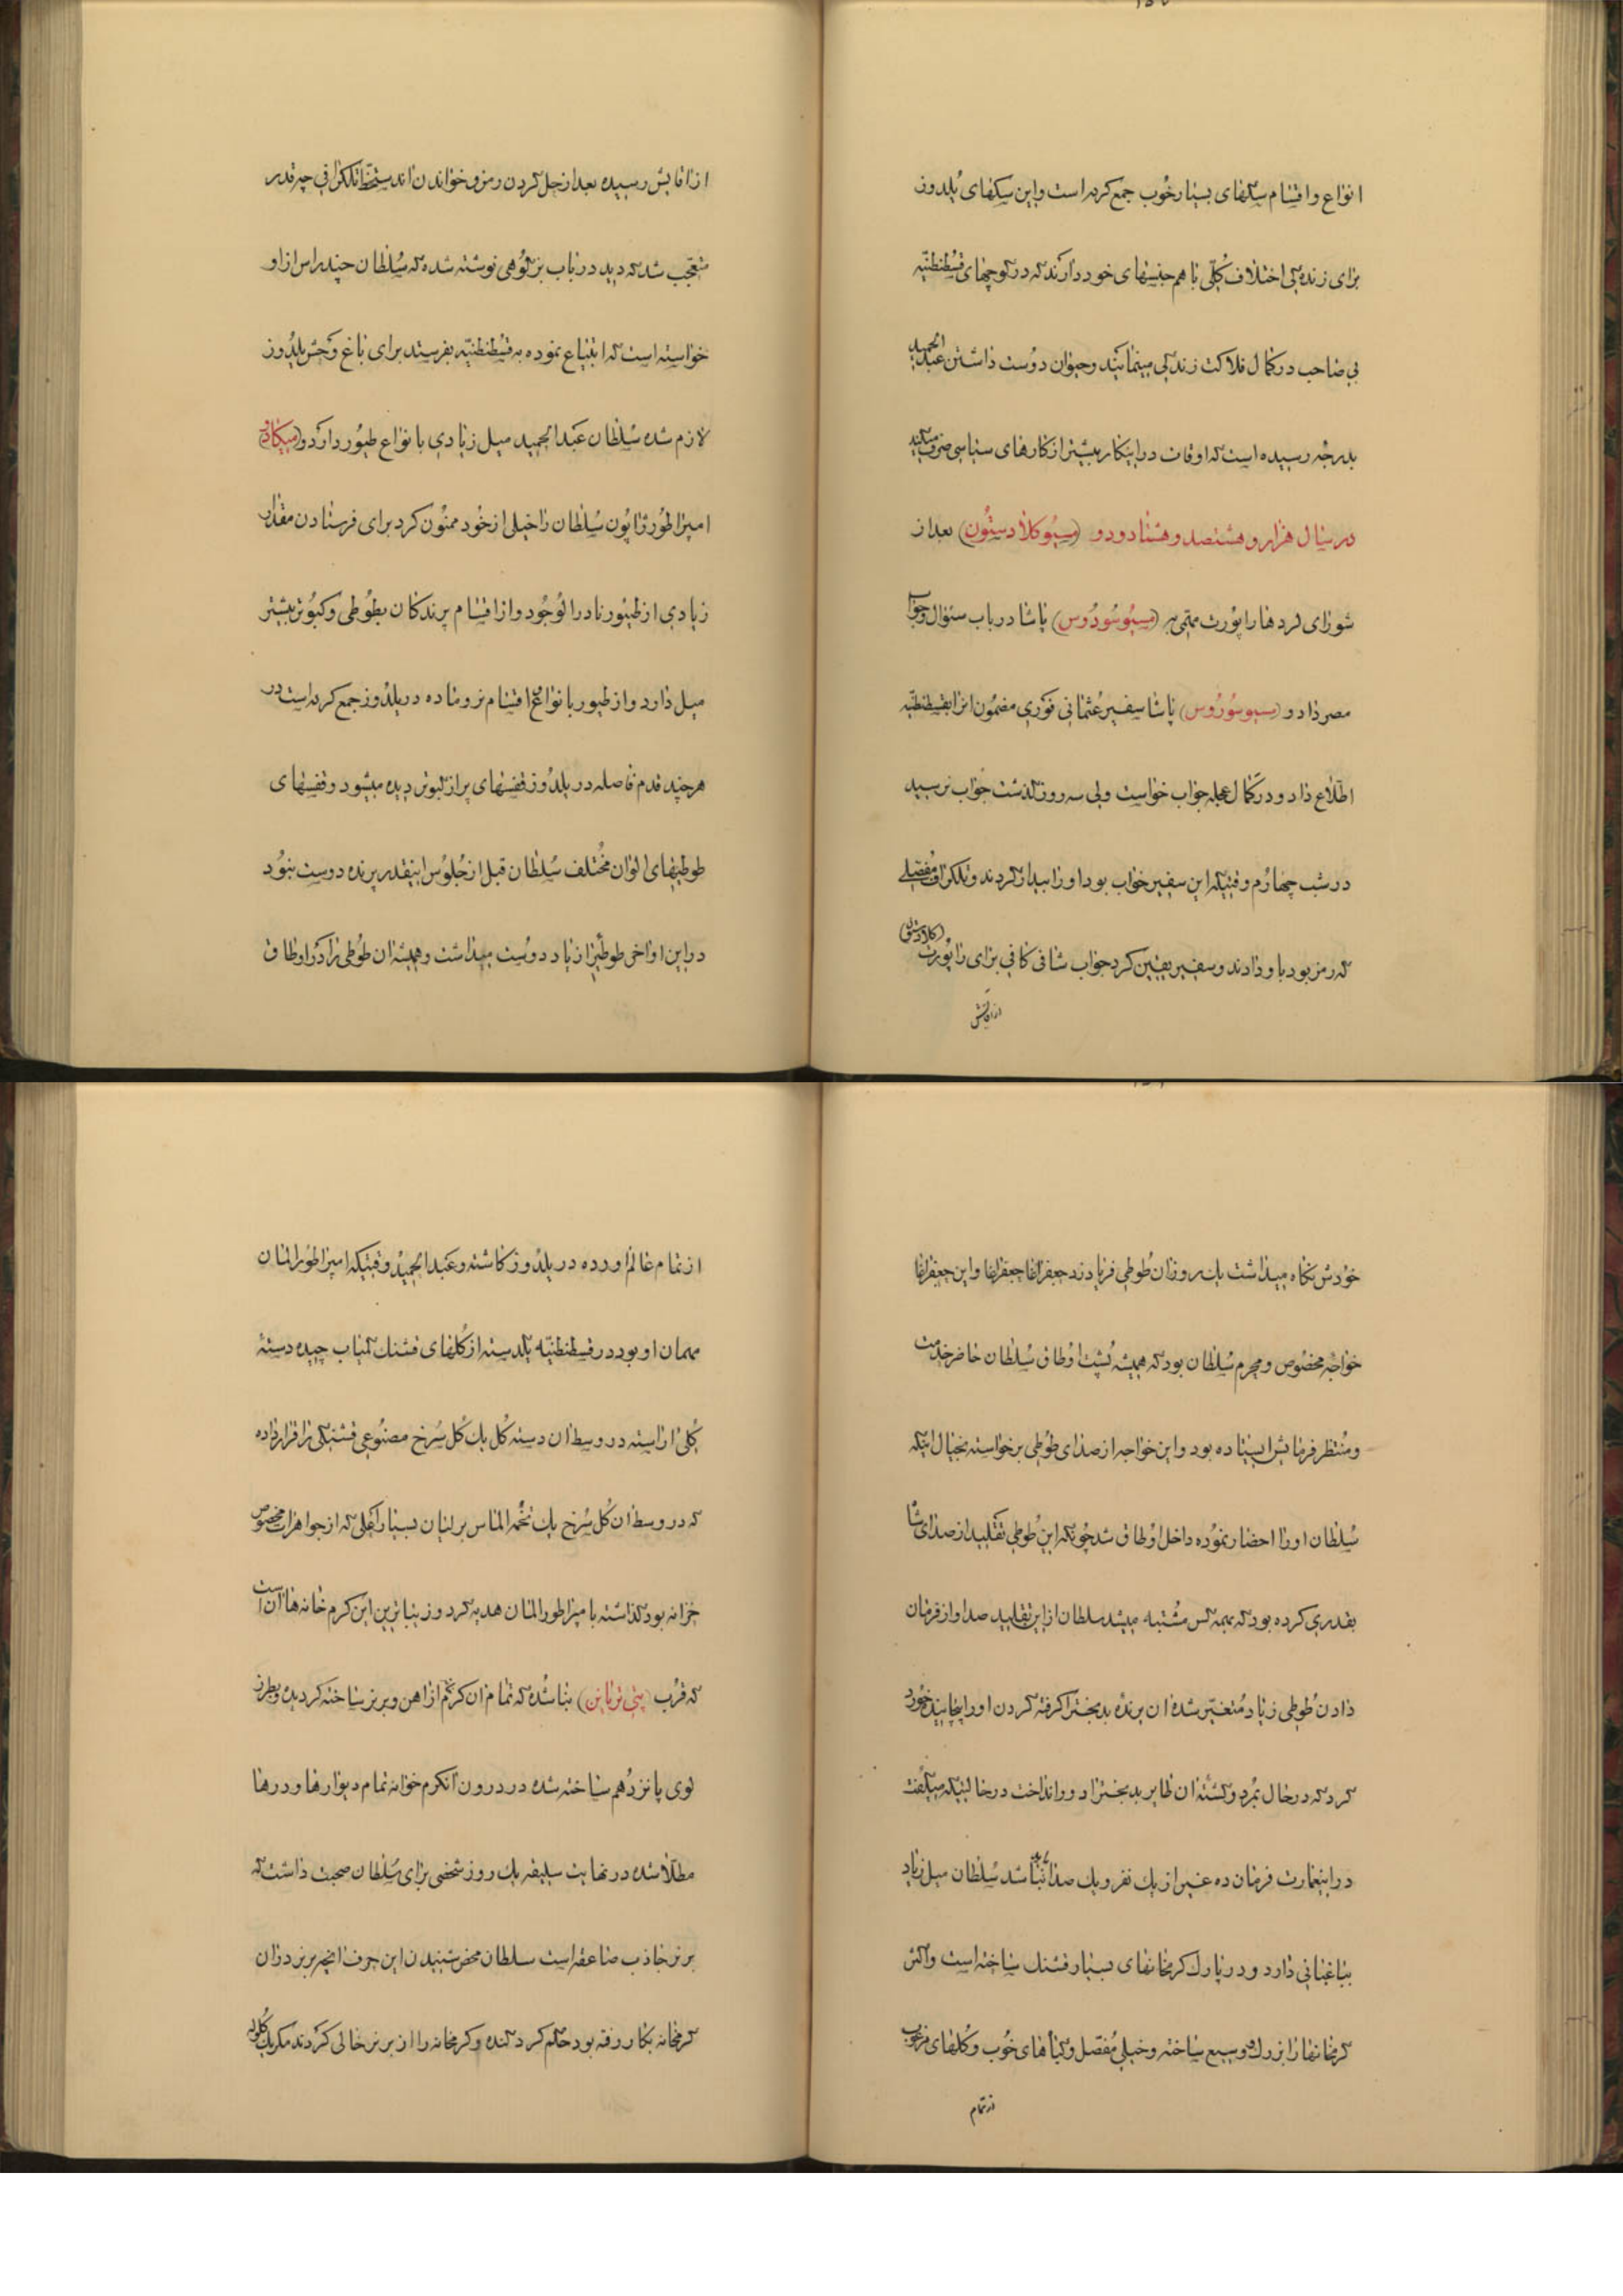 انواع و اقسام سگهای بسیار خوب جمع کرده است و این سگهای یلدوز
برای زندگی اختلاف کلی با هم جنسهای خود دارند که در کوچهای قسطنطنیه
بی صاحب در کمال فلاکت زندگی مینمایند و حیوان دوست داشتن عبدالحمید
بدرجه رسیده است که اوقات در اینکار بیشتر از کارهای سیاسی صرف میکند
در سال هزار و هشتصد و هشتاد و دو (مسیو کلادستون) بعد از
شورای لردها راپورت مهمی به (مسیو سوروس) پاشا در باب سئوال و جواب
مصر داد و (مسیو سوروس) پاشا سفیر عثمانی فوری مضمون انرا بقسطنطنیه
اطلاع داد و در کمال عجله جواب خواست ولی سه روز گذشت جواب نرسید
در شب چهارم وقتیکه این سفیر خواب بود او را بیدار کردند و تلگراف مفصلی
که رمز بود باو دادند و سفیر یقین کرد جواب شافی کافی برای راپورت (کلادستون)
از اقایش
از اقایش رسیده بعد از حل کردن رمز و خواندن اندستخط تلگرافی چه قدر
متعجب شد که دید در باب بز کوهی نوشته شده که سلطان چند راس از او
خواسته است که ابتیاع نموده به قسطنطنیه بفرستد برای باغ وحش یلدوز
لازم شده سلطان عبدالحمید میل زیادی با نواع طیور دارد و (میکادو)
امپراطور ژاپون سلطان را خیلی از خود ممنون کرد برای فرستادن مقدار
زیادی از طیور نادر الوجود و از اقسام پرندگان بطوطی و کبوتر بیشتر
میل دارد و از طیور با نواع اقسام نر و ماده در یلدوز جمع کرده است در
هر چند قدم فاصله در یلدوز قفسهای پر از کبوتر دیده میشود و قفسهای
طوطیهای الوان مختلف سلطان قبل از جلوس اینقدر پرنده دوست نبود
در این اواخر طوطی را زیاد دوست میداشت و همیشه ان طوطی را در اوطاق
خودش نگاه میداشت یک روز ان طوطی فریاد زد جعفر اغا جعفر اغا و این جعفر اغا
خواجه مخصوص و محرم سلطان بود که همیشه پشت اوطاق سلطان حاضر خدمت
و منتظر فرمایش ایستاده بود و این خواجه از صدای طوطی برخواسته بخیال اینکه
سلطان او را احضار نموده داخل اوطاق شد چونکه این طوطی تقلید از صدای شاه
بقدری کرده بود که بهمه کس مشتبه میشد سلطان از این تقلید صدا و از فرمان
دادن طوطی زیاد متغیر شده ان پرنده بدبخترا گرفته گردن او را پیچانیده خورد
کرد که در حال بمرد و کشته ان طایر بدبخترا دور انداخت در حالتیکه میگفت
در اینعمارت فرمان ده غیر از یک نفر و یک صدا نباید باشد سلطان میل زیاد
بباغبانی دارد و در پارک گرمخانهای بسیار قشنگ ساخته است و اکثر
گرمخانها را بزرک و وسیع ساخته و خیلی مفصل و گیاهای خوب و گلهای مرغوب
از تمام
از تمام عالم اورده در یلدوز کاشته و عبدالحمید وقتیکه امپراطور المان
مهمان او بود در قسطنطنیه یکدسته از گلهای قشنگ کمیاب چیده دسته
گلی اراسته در وسط ان دسته گل یک گل سرخ مصنوعی قشنگی را قرار داده
که در وسط ان گل سرخ یک تخمه الماس برلیان بسیار اعلی که از جواهرات مخصوص
خزانه بود گذاشته با مپراطور المان هدیه کرد و زیباترین این گرم خانه ها ان است
که قرب (پتی تریانن) بنا شده که تمام ان گرمخانه از اهن و برنز ساخته گردیده و بطرز
لوی پانزدهم ساخته شده در درون آنگرم خوانه تمام دیوارها و درها
مطلا شده در نهایت سلیقه یک روز شخصی برای سلطان صحبت داشت که
برنز جاذب صاعقه است سلطان محض شنیدن این حرف انچه برنز در ان
گرمخانه بکار رفته بود حکم کرد کنده و گرمخانه را از برنز خالی کردند مگر یک گلوله